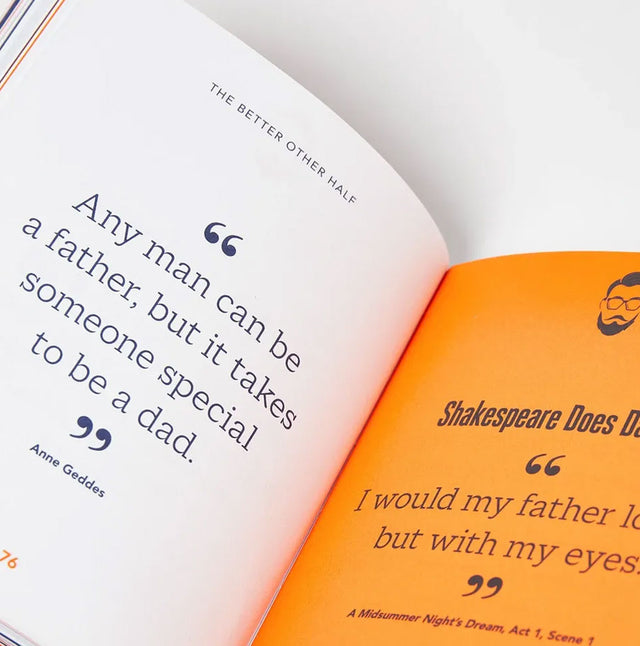 THE BETTER OTHER HALF
“
Any man can be
a father, but it takes
someone special
to be a dad.
”
Anne Geddes
76
Shakespeare Does
“
I would my father
but with my eyes.
”
A Midsummer Night's Dream, Act 1, Scene 1